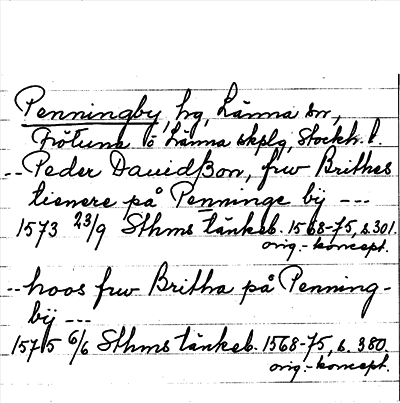 Penningby, hg, Länna sn,
Frötuna o Länna skplg, Stockh. l.
-- Peder Dauidßon, frw Brithes
tienere på Penninge bij ---
1573 23/9 Sthms tänkeb. 1568-75, s. 301.
orig.-koncept.
-- hoos frw Britha på Penning-
bij ---
1575 6/6 Sthms tänkeb. 1568-75, s. 380.
orig.-koncept.